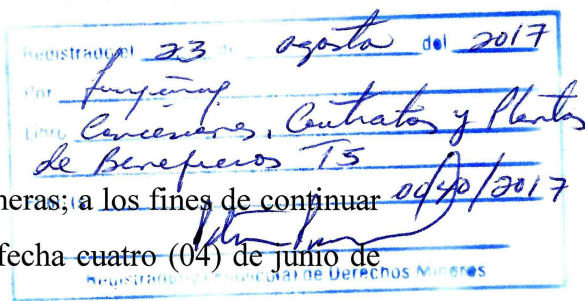 Registrado el 23 de agosto del 2017
Por
Libro Concesiones, Contratos y Plantas
de Beneficios T5
0040/2017
neras; a los fines de continuar
fecha cuatro (04) de junio de
de Derechos Mineros